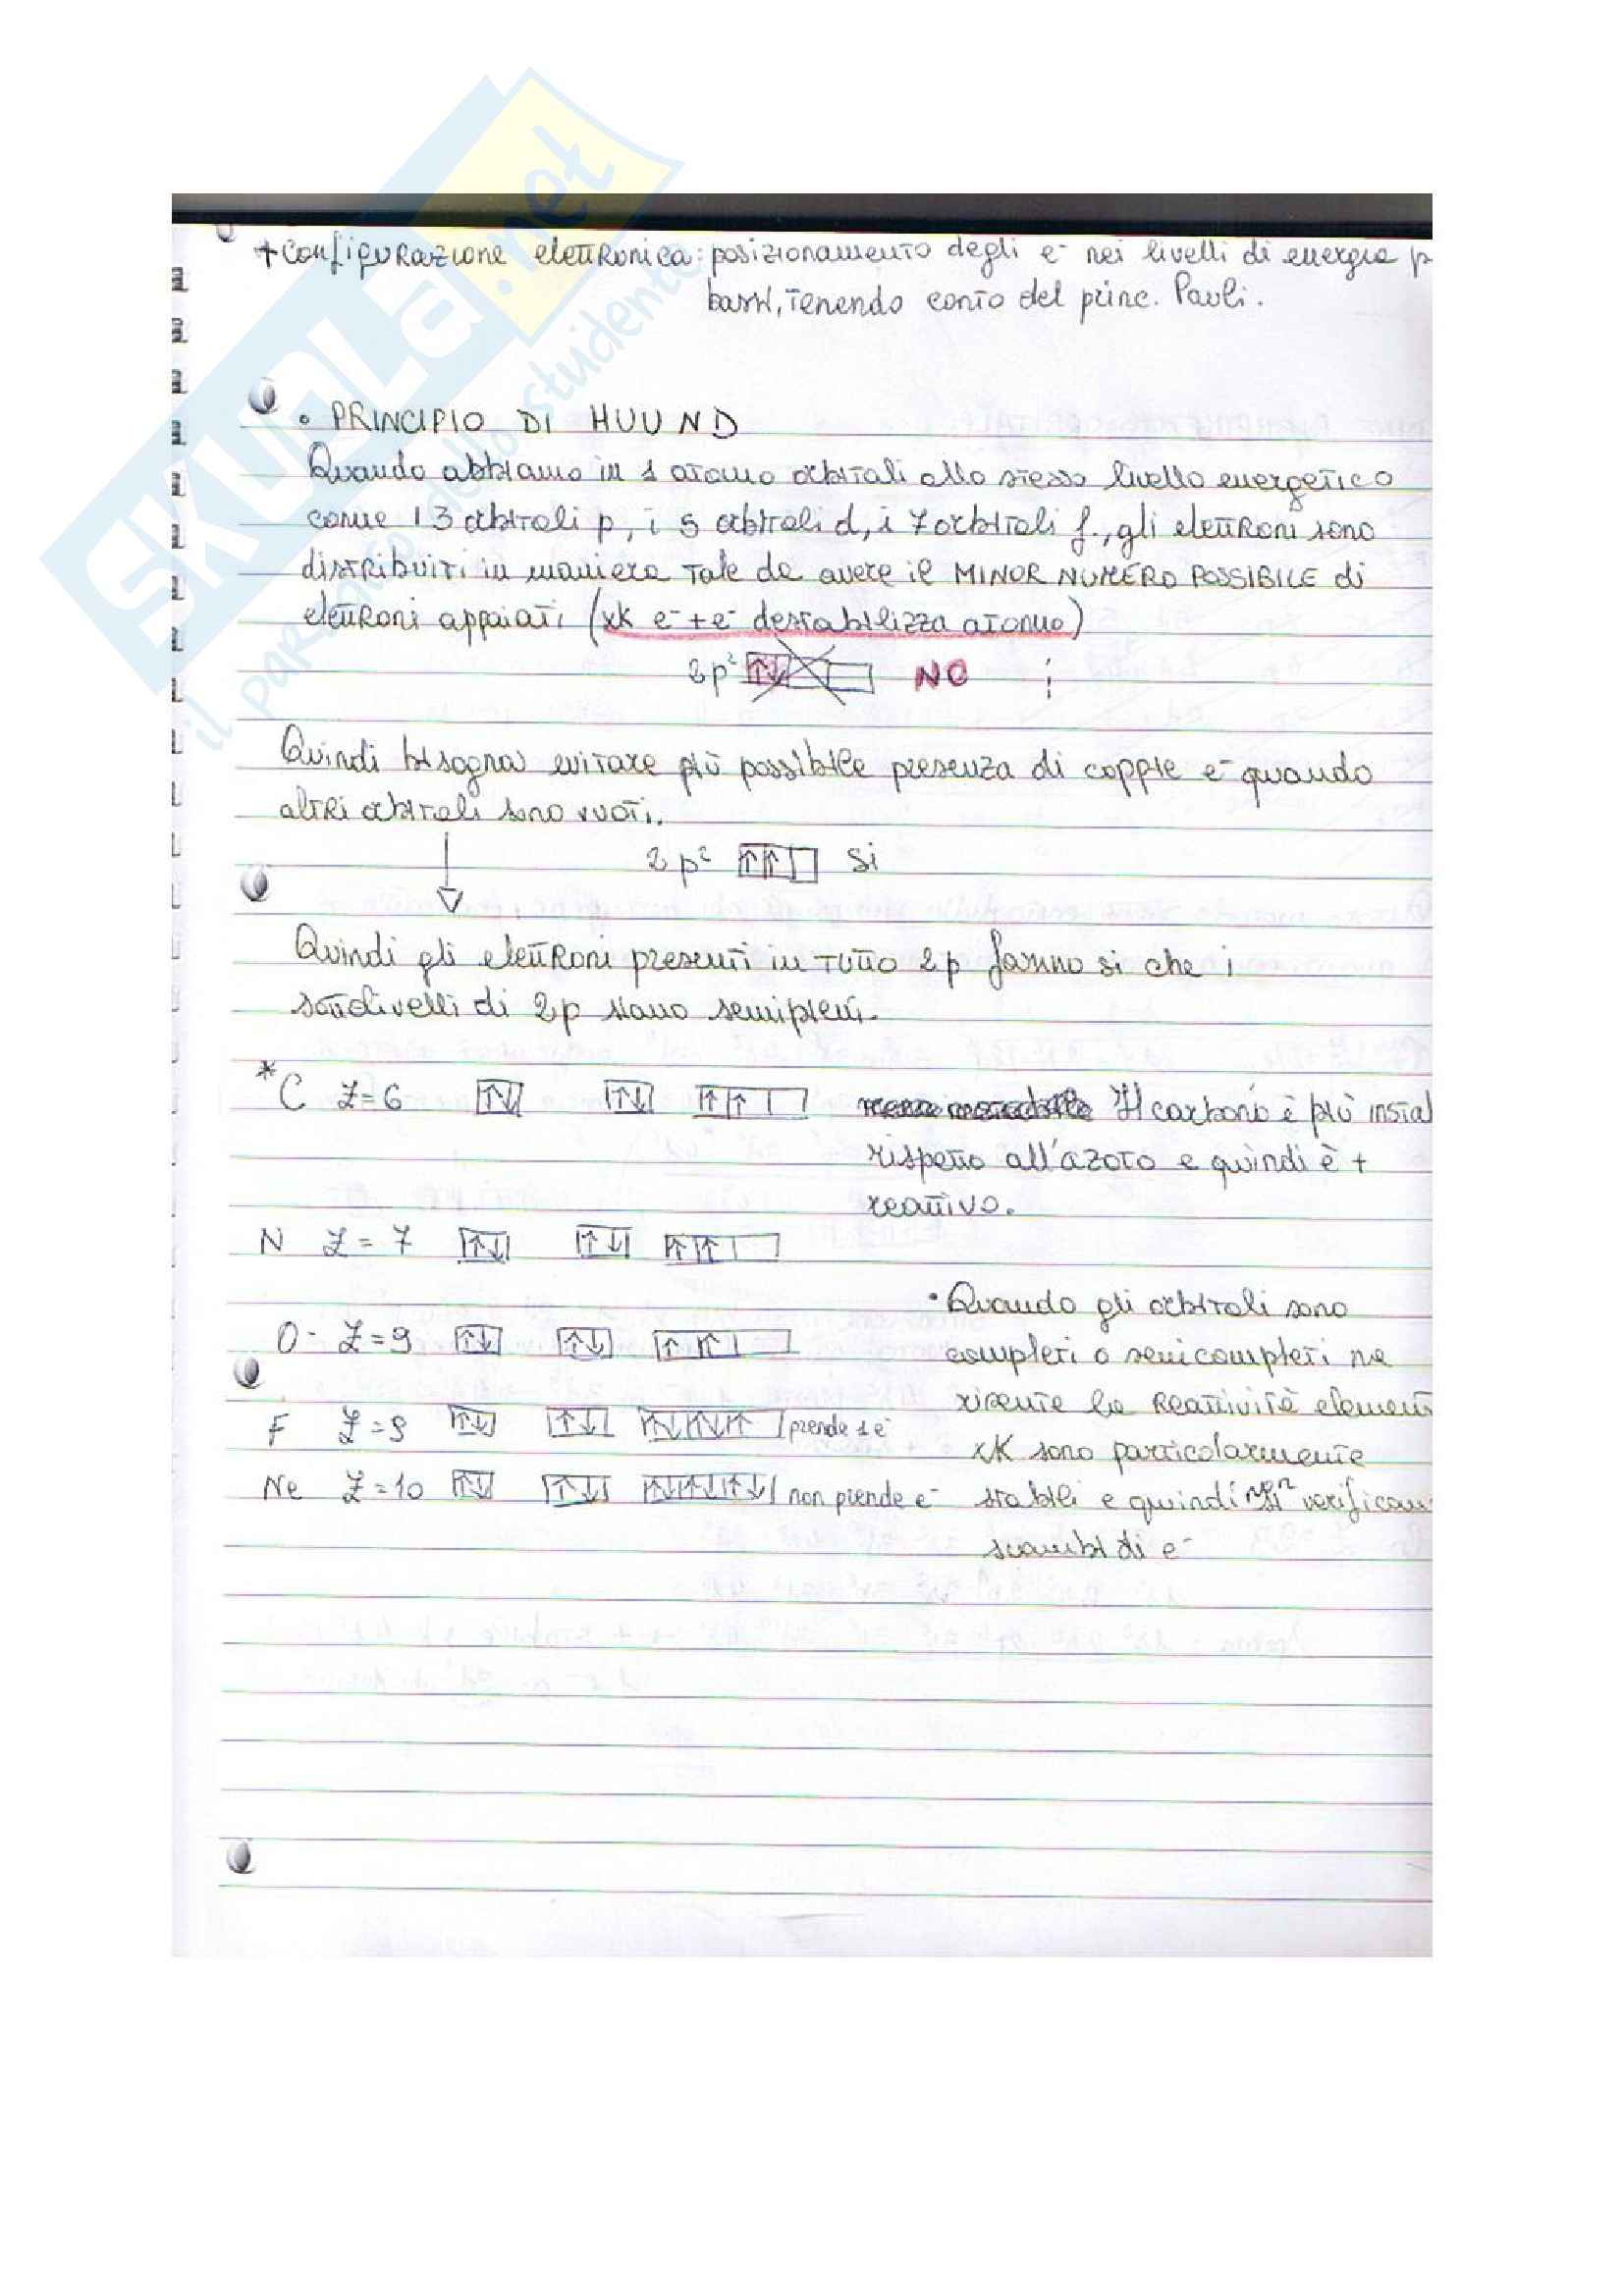 SKUOLA.net
il paradiso dello studente
+ Configurazione elettronica: posizionamento degli e⁻ nei livelli di energia p
bassi, tenendo conto del princ. Pauli.
• PRINCIPIO DI HUUND
Quando abbiamo in 1 atomo orbitali allo stesso livello energetico
come i 3 orbitali p, i 5 orbitali d, i 7 orbitali f., gli elettroni sono
distribuiti in maniera tale da avere il MINOR NUMERO POSSIBILE di
elettroni appaiati (xk e⁻ + e⁻ destabilizza atomo)
2p² ↑↓ NO
Quindi bisogna evitare più possibile presenza di coppie e⁻ quando
altri orbitali sono vuoti.
2p² ↑ ↑ si
Quindi gli elettroni presenti in tutto 2p fanno si che i
sottolivelli di 2p siano semipieni.
* C Z=6 ↑↓ ↑↓ ↑ ↑ Il carbonio è più instal
rispetto all'azoto e quindi è +
reattivo.
N Z=7 ↑↓ ↑↓ ↑ ↑
• Quando gli orbitali sono
O⁻ Z=9 ↑↓ ↑↓ ↑ ↑ completi o semicompleti ne
risente la reattività element
F Z=9 ↑↓ ↑↓ ↑↓ ↑↓ ↑ prende 1 e⁻
xk sono particolarmente
Ne Z=10 ↑↓ ↑↓ ↑↓ ↑↓ ↑↓ non prende e⁻ stabili e quindi non si verifican
scambi di e⁻